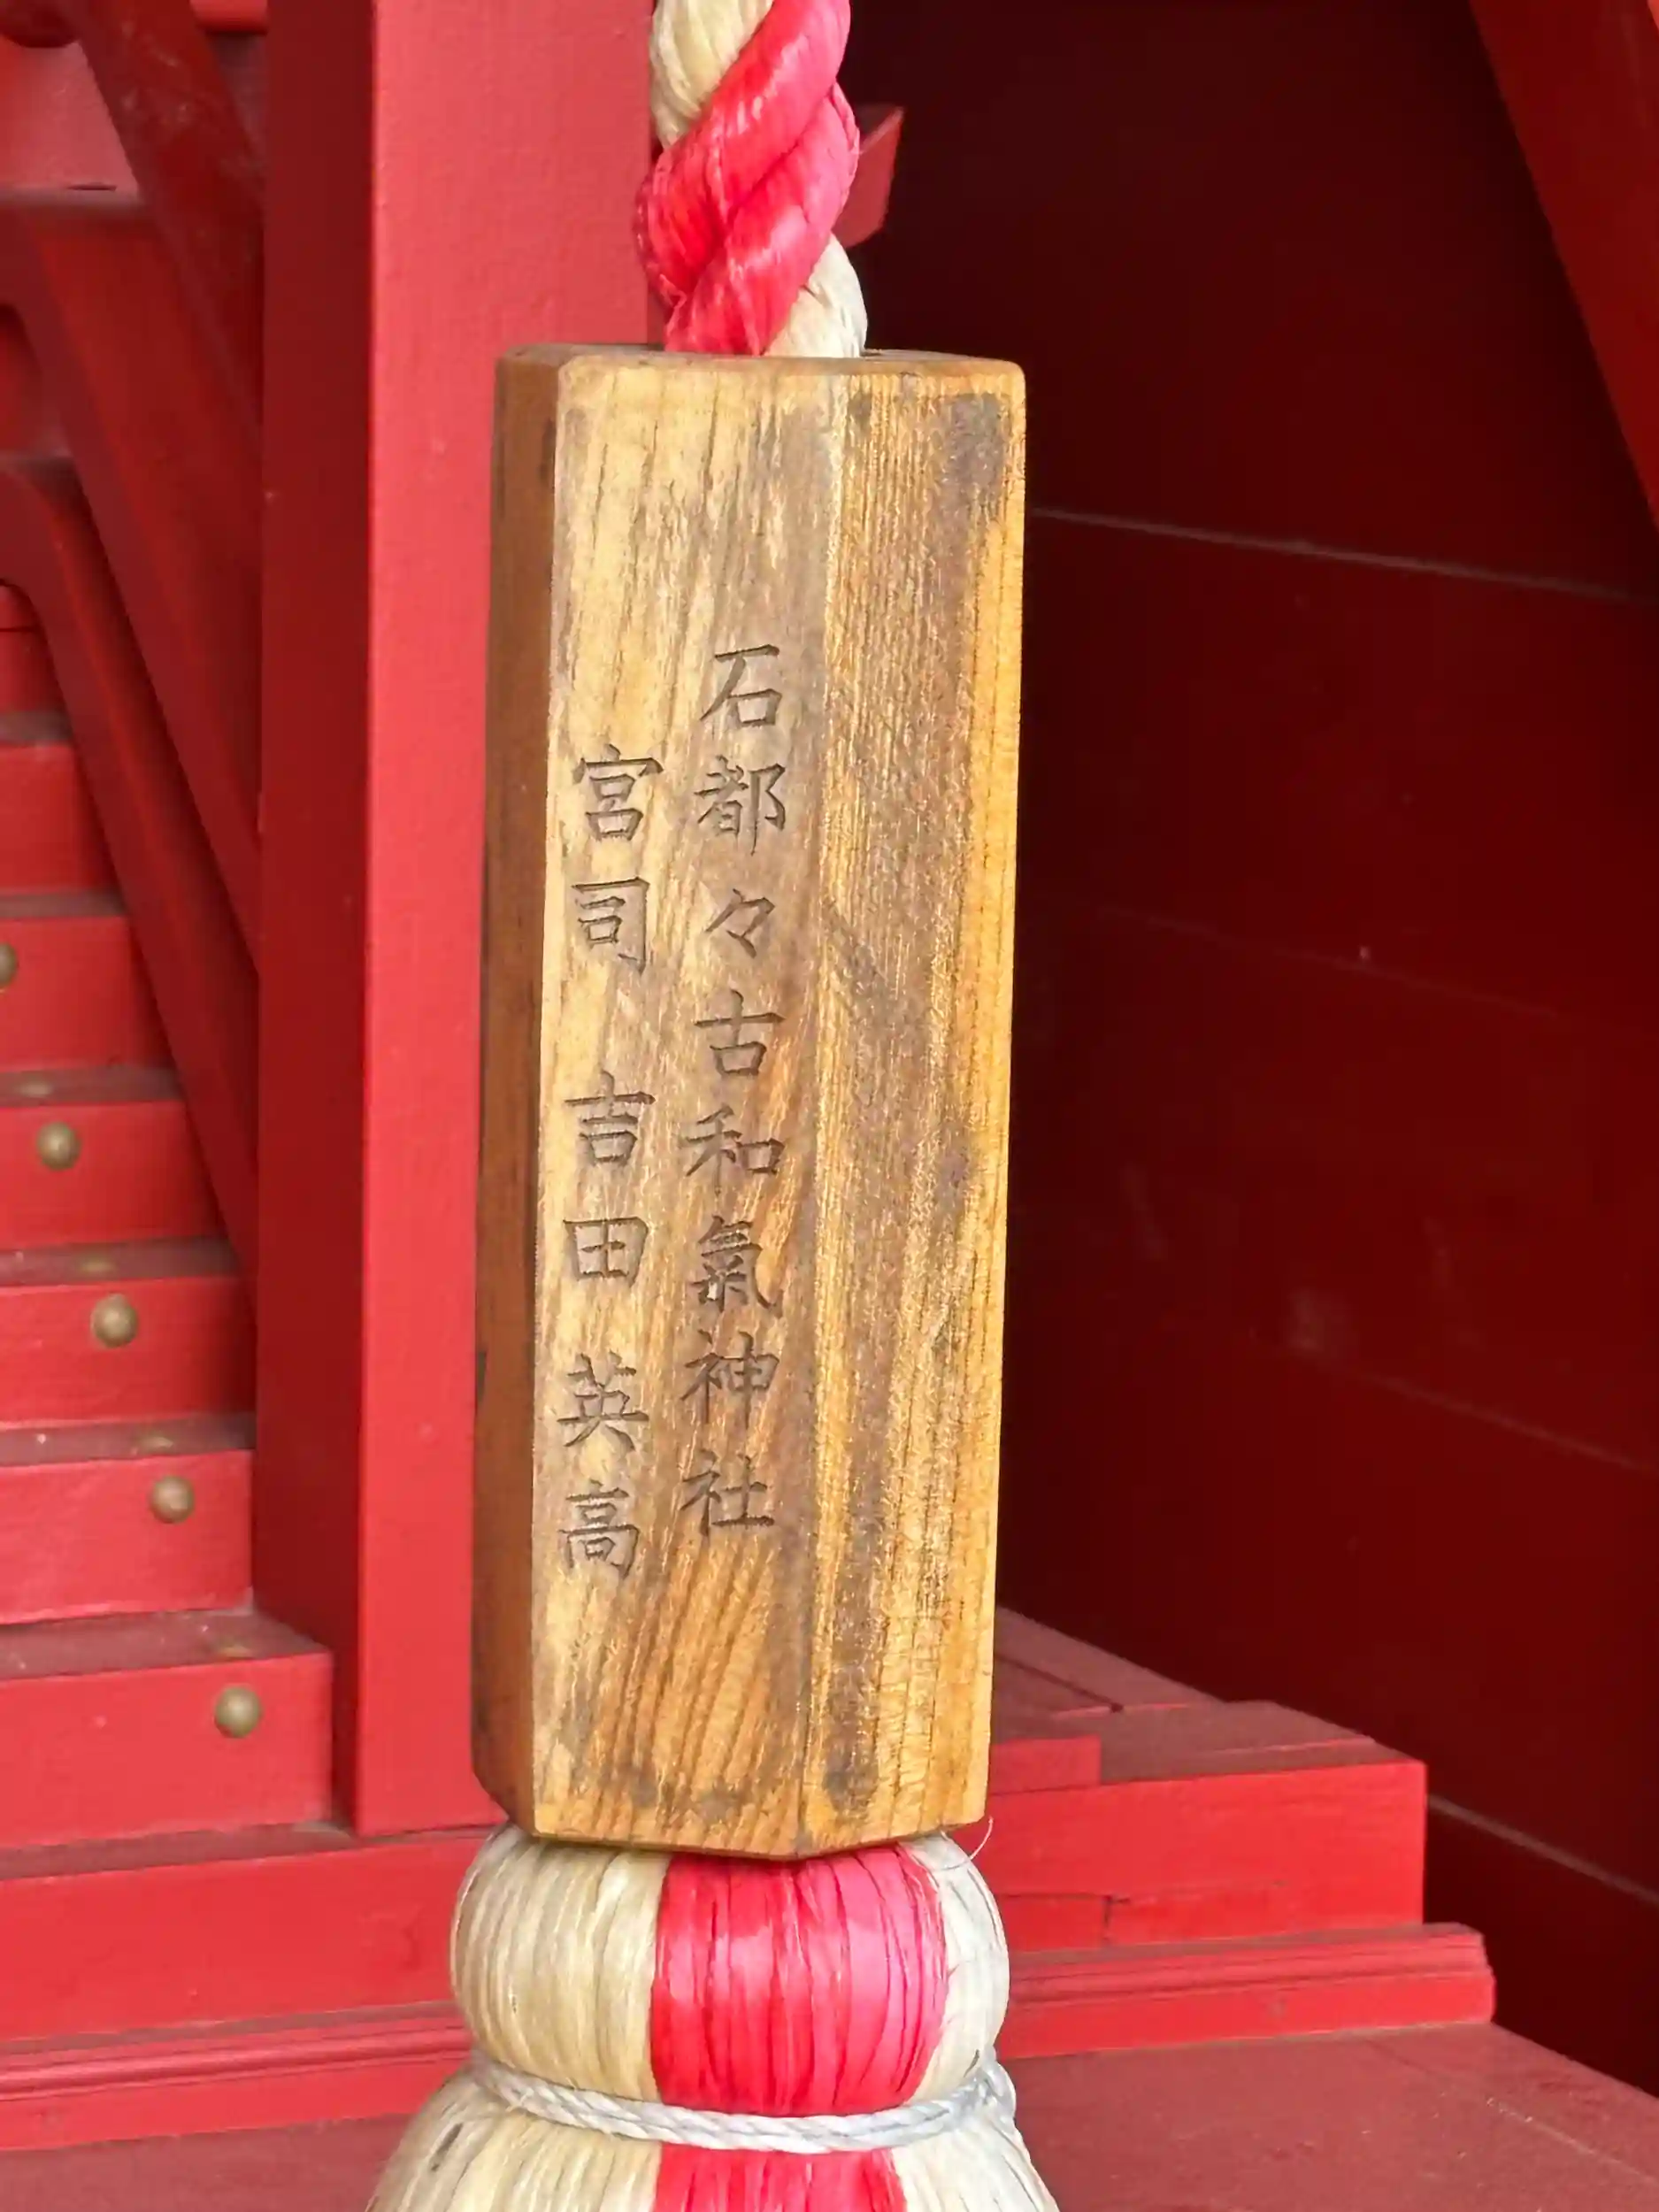 石都々古和氣神社
宮司 吉田英高